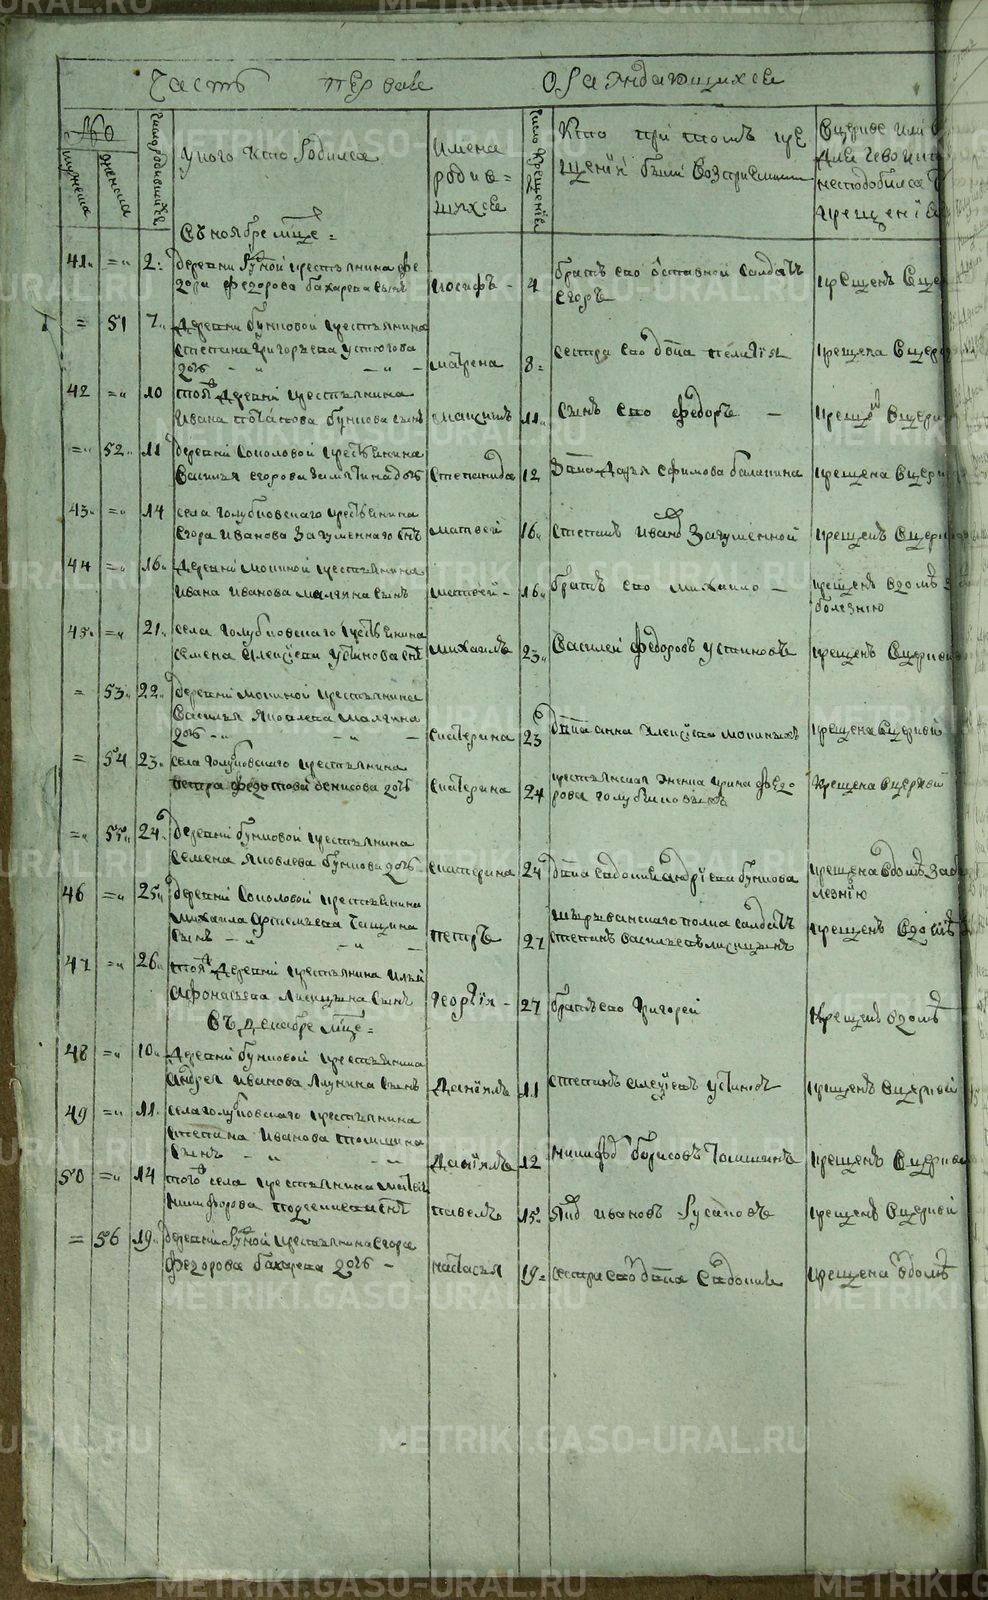 Часть первая о раждающихся
№
мужеска
женска
число родившихся
у кого кто родился
имена родив=
шихся
число крещения
кто при томъ кре
щенiи были восприемники
в церкве или в
для чево и
несподобился
крещенiя
въ ноябре мце=
41 " =" 2: деревни крестьянина Фе
дора Федорова Бахарева сынъ иосифъ - 4 братъ ево отставной салдатъ
Егоръ крещенъ в це
= 51 7 " деревни Бунковой крестьянина
Степана Григорьева Устюгова
дочь - " - " - матрена 8 = сестра ево девка Пелагiя крещена в цер
42 =" 10 той деревни крестьянина
Ивана Потапова Бункова сынъ максимъ 11 " сынъ ево Федоръ - крещенъ в церк
=" 52 " 11 деревни Соколовой крестьянина
Василья Егорова дочь степанида 12 Дарья Ефимова Балакина крещена в церк
43 " =" 14 села Голубковскаго крестьянина
Егора Иванова Загуменнаго сынъ матвей 16 " Степанъ Иванов Загуменной крещенъ в церк
44 =" 16 " деревни Мокиной крестьянина
Ивана Иванова Малгина сынъ матвей - 16 " братъ ево Михайло - крещенъ в домѣ за
болезнiю
45 " =" 21 " села Голубковскаго крестьянина
Семена Алексiева Устинова сынъ михаилъ 23 " Василей Федоровъ Устиновъ крещенъ в церкви
= 53 " 22 " деревни Мокиной крестьянина
Василья Яковлева Малгина
дочь - " - " - екатерина 23 девка Анна Алексiева Мокиныхъ крещена в церквiй
= 54 23 " села Голубковскаго крестьянина
Петра Федотова Денисова дочь екатерина 24 крестьянская женка Ирина Федо
рова Голубковыхъ крещена в церквiй
=" 55 " 24 " деревни Бунковой крестьянина
Семена Яковлева Бункова дочь - екатерина 24 девка Евдокия Андрiева Бункова крещена в домѣ за бо
лезнiю
46 =" 25 " деревни Соколовой крестьянина
Михаила Арсеньева
сынъ - " - " - петръ 27 Ширванскаго полка салдатъ
Степанъ Васильевъ Лисицынъ крещенъ в домѣ
47 =" 26 " той деревни крестьянина Ильи
Афонасьева Лисицына сынъ георгiй - 27 братъ ево Григорей крещенъ в домѣ
въ декабре мце=
48 =" 10 " деревни Бунковой крестьянина
Андрея Иванова сынъ данiилъ 11 Степанъ Алексiевъ Устиновъ крещенъ в церквiй
49 =" 11 " села Голубковскаго крестьянина
Степана Иванова Томшина
сынъ - " - " данiилъ 12 Никифоръ Борисовъ Томшинъ крещенъ в церкви
50 =" 14 того села крестьянина Матвея
Никифорова сынъ павелъ 15 " Яковъ Ивановъ Русаковъ крещенъ в церквiй
= 56 19 " деревни крестьянина Егора
Федорова Бахарева дочь - настасья 19 = сестра ево девка Евдокия крещена в домѣ
METRIKI.GASO-URAL.RU